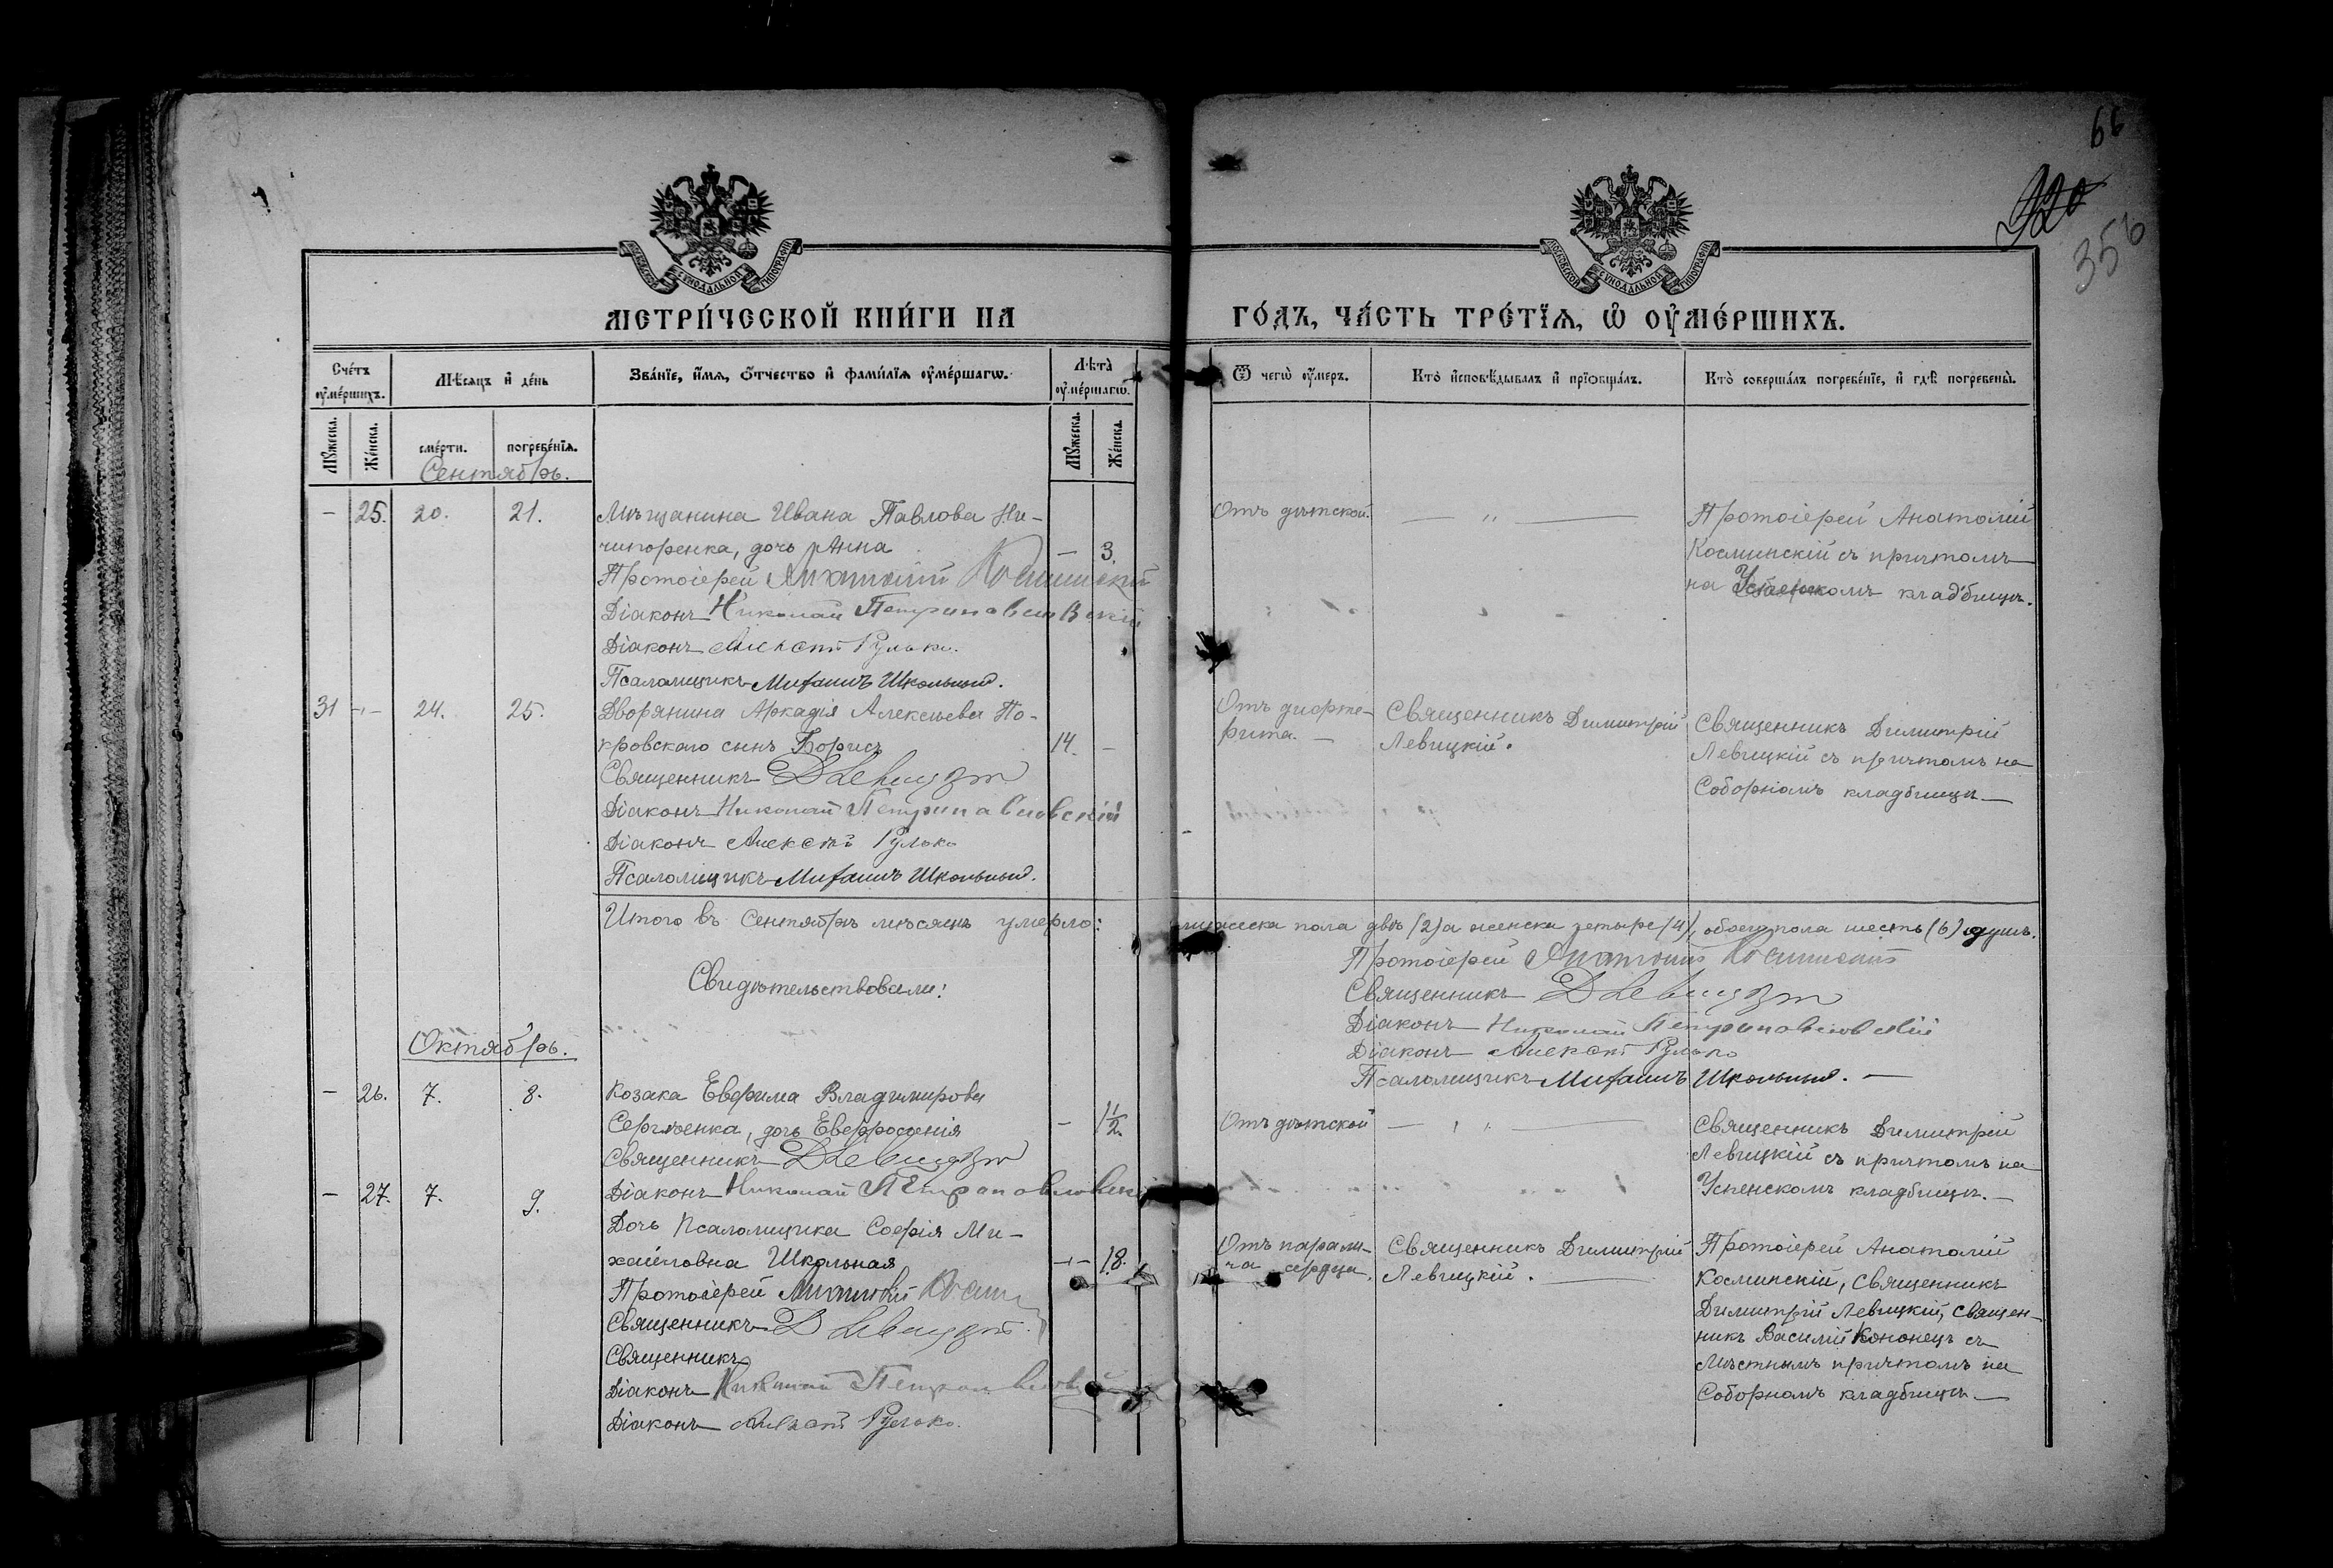 66
420
356
МЕТРИ́ЧЕСКОЙ КНИ́ГИ НА
ГО́ДЪ, ЧА́СТЬ ТРЕ́ТЇѦ, Ѡ҆ ОУ҆МЕ́РШИХЪ.
Сче́тъ оу҆ме́ршихъ.
Мѣ́сяцъ и҆ де́нь
Зва́нїе, и҆́мѧ, ѻ҆́тчество и҆ фами́лїѧ оу҆ме́ршагѡ.
Лѣ́та оу҆ме́ршагѡ.
Ѿ чегѡ̀ оу҆́меръ.
Кто̀ и҆сповѣ́дывалъ и҆ прїѻбща́лъ.
Кто̀ соверша́лъ погребе́нїе, и҆ гдѣ̀ погребены̀.
Мꙋ́жеска.
Же́нска.
сме́рти.
погребе́нїѧ.
Мꙋ́жеска.
Же́нска.
Сентябрь.
- 25. 20. 21.
Мѣщанина Ивана Павлова Ни-
чипоренка, дочь Анна - 3.
Протоіерей Анатолій Косминскій
Діаконъ Николай Петропавловскій
Діаконъ Алексѣй Рулько.
Псаломщикъ Михаилъ Школьный.
Отъ дѣтской.
Протоіерей Анатолій
Косминскій съ причтомъ
на Успенскомъ кладбищѣ.
31 - 24. 25.
Дворянина Аркадія Алексѣева По-
кровскаго сынъ Борисъ 14. -
Священникъ Д Левицкій
Діаконъ Николай Петропавловскій
Діаконъ Алексѣй Рулько
Псаломщикъ Михаилъ Школьный.
Отъ дифте-
рита. -
Священникъ Димитрій
Левицкій.
Священникъ Димитрій
Левицкій съ причтомъ на
Соборномъ кладбищѣ
Итого въ Сентябрѣ мѣсяцѣ умерло: мужеска пола двѣ (2) а женска четыре (4), обоего пола шесть (6) душъ.
Свидѣтельствовали:
Протоіерей Анатолій Косминскій
Священникъ Д Левицкій
Діаконъ Николай Петропавловскій
Діаконъ Алексѣй Рулько
Псаломщикъ Михаилъ Школьный. -
Октябрь.
- 26. 7. 8.
Козака Евфима Владимирова
Сергѣенка, дочь Евфросинія - 1½.
Священникъ Д Левицкій
Діаконъ Николай Петропавловскій
Отъ дѣтской
Священникъ Димитрій
Левицкій съ причтомъ на
Успенскомъ кладбищѣ. -
- 27. 7. 9.
Дочь Псаломщика Софія Ми-
хайловна Школьная - 18.
Протоіерей Анатолій Косми
Священникъ Д Левицкій
Священникъ
Діаконъ Николай Петропавловскій
Діаконъ Алексѣй Рулько.
Отъ парали-
ча сердца.
Священникъ Димитрій
Левицкій.
Протоіерей Анатолій
Косминскій, Священникъ
Димитрій Левицкій, Священ-
никъ Василій Кононецъ съ
мѣстнымъ причтомъ на
Соборномъ кладбищѣ